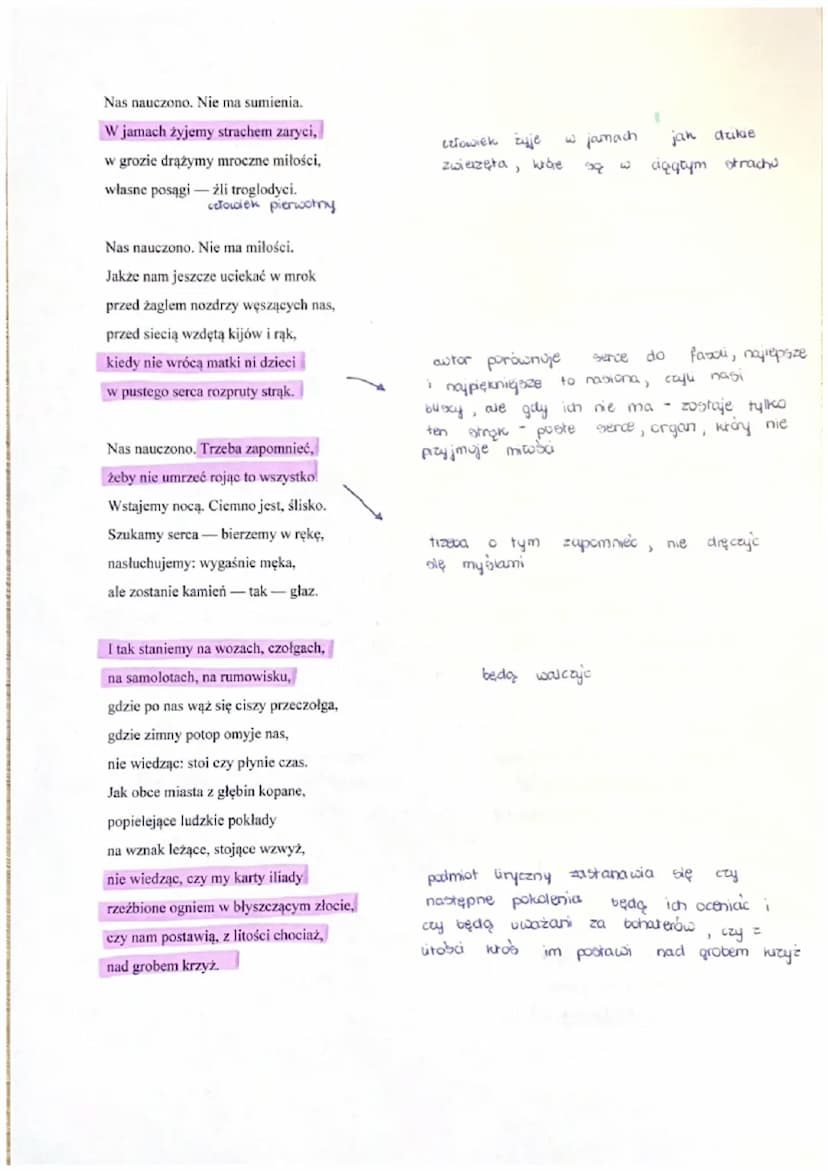 Nas nauczono. Nie ma sumienia.
W jamach żyjemy strachem zaryci,
w grozie drążymy mroczne miłości,
własne posągi — źli troglodyci.
człowiek pierwotny
człowiek żyje w jamach jak dzikie
zwierzęta, które są w ciągłym strachu
Nas nauczono. Nie ma miłości.
Jakże nam jeszcze uciekać w mrok
przed żaglem nozdrzy węszących nas,
przed siecią wzdętą kijów i rąk,
kiedy nie wrócą matki ni dzieci
w pustego serca rozpruty strąk.
autor porównuje serce do fasoli, najlepsze
i najpiękniejsze to nasiona, czyli nasi
bliscy, ale gdy ich nie ma - zostaje tylko
ten strąk - puste serce, organ, który nie
przyjmuje miłości
Nas nauczono. Trzeba zapomnieć,
żeby nie umrzeć rojąc to wszystko.
Wstajemy nocą. Ciemno jest, ślisko.
Szukamy serca — bierzemy w rękę,
nasłuchujemy: wygaśnie męka,
ale zostanie kamień — tak — głaz.
trzeba o tym zapomnieć, nie dręczyć
się myślami
I tak staniemy na wozach, czołgach,
na samolotach, na rumowisku,
gdzie po nas wąż się ciszy przeczołga,
gdzie zimny potop omyje nas,
nie wiedząc: stoi czy płynie czas.
Jak obce miasta z głębin kopane,
popielejące ludzkie pokłady
na wznak leżące, stojące wzwyż,
nie wiedząc, czy my karty iliady
rzeźbione ogniem w błyszczącym złocie,
czy nam postawią, z litości chociaż,
nad grobem krzyż.
będą walczyć
podmiot liryczny zastanawia się czy
następne pokolenia będą ich oceniać i
czy będą uważani za bohaterów, czy z
litości ktoś im postawi nad grobem krzyż